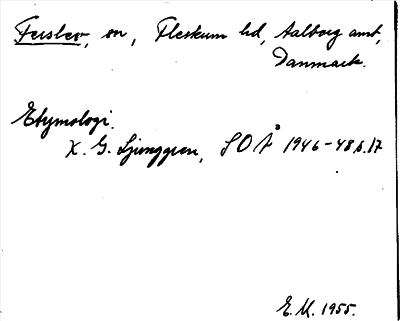 Ferslev, sn, Fleskum hd, Aalborg amt,
Danmark.
Etymologi.
K. G. Ljunggren, SOÅ 1946-48 s. 17
E. M. 1955.